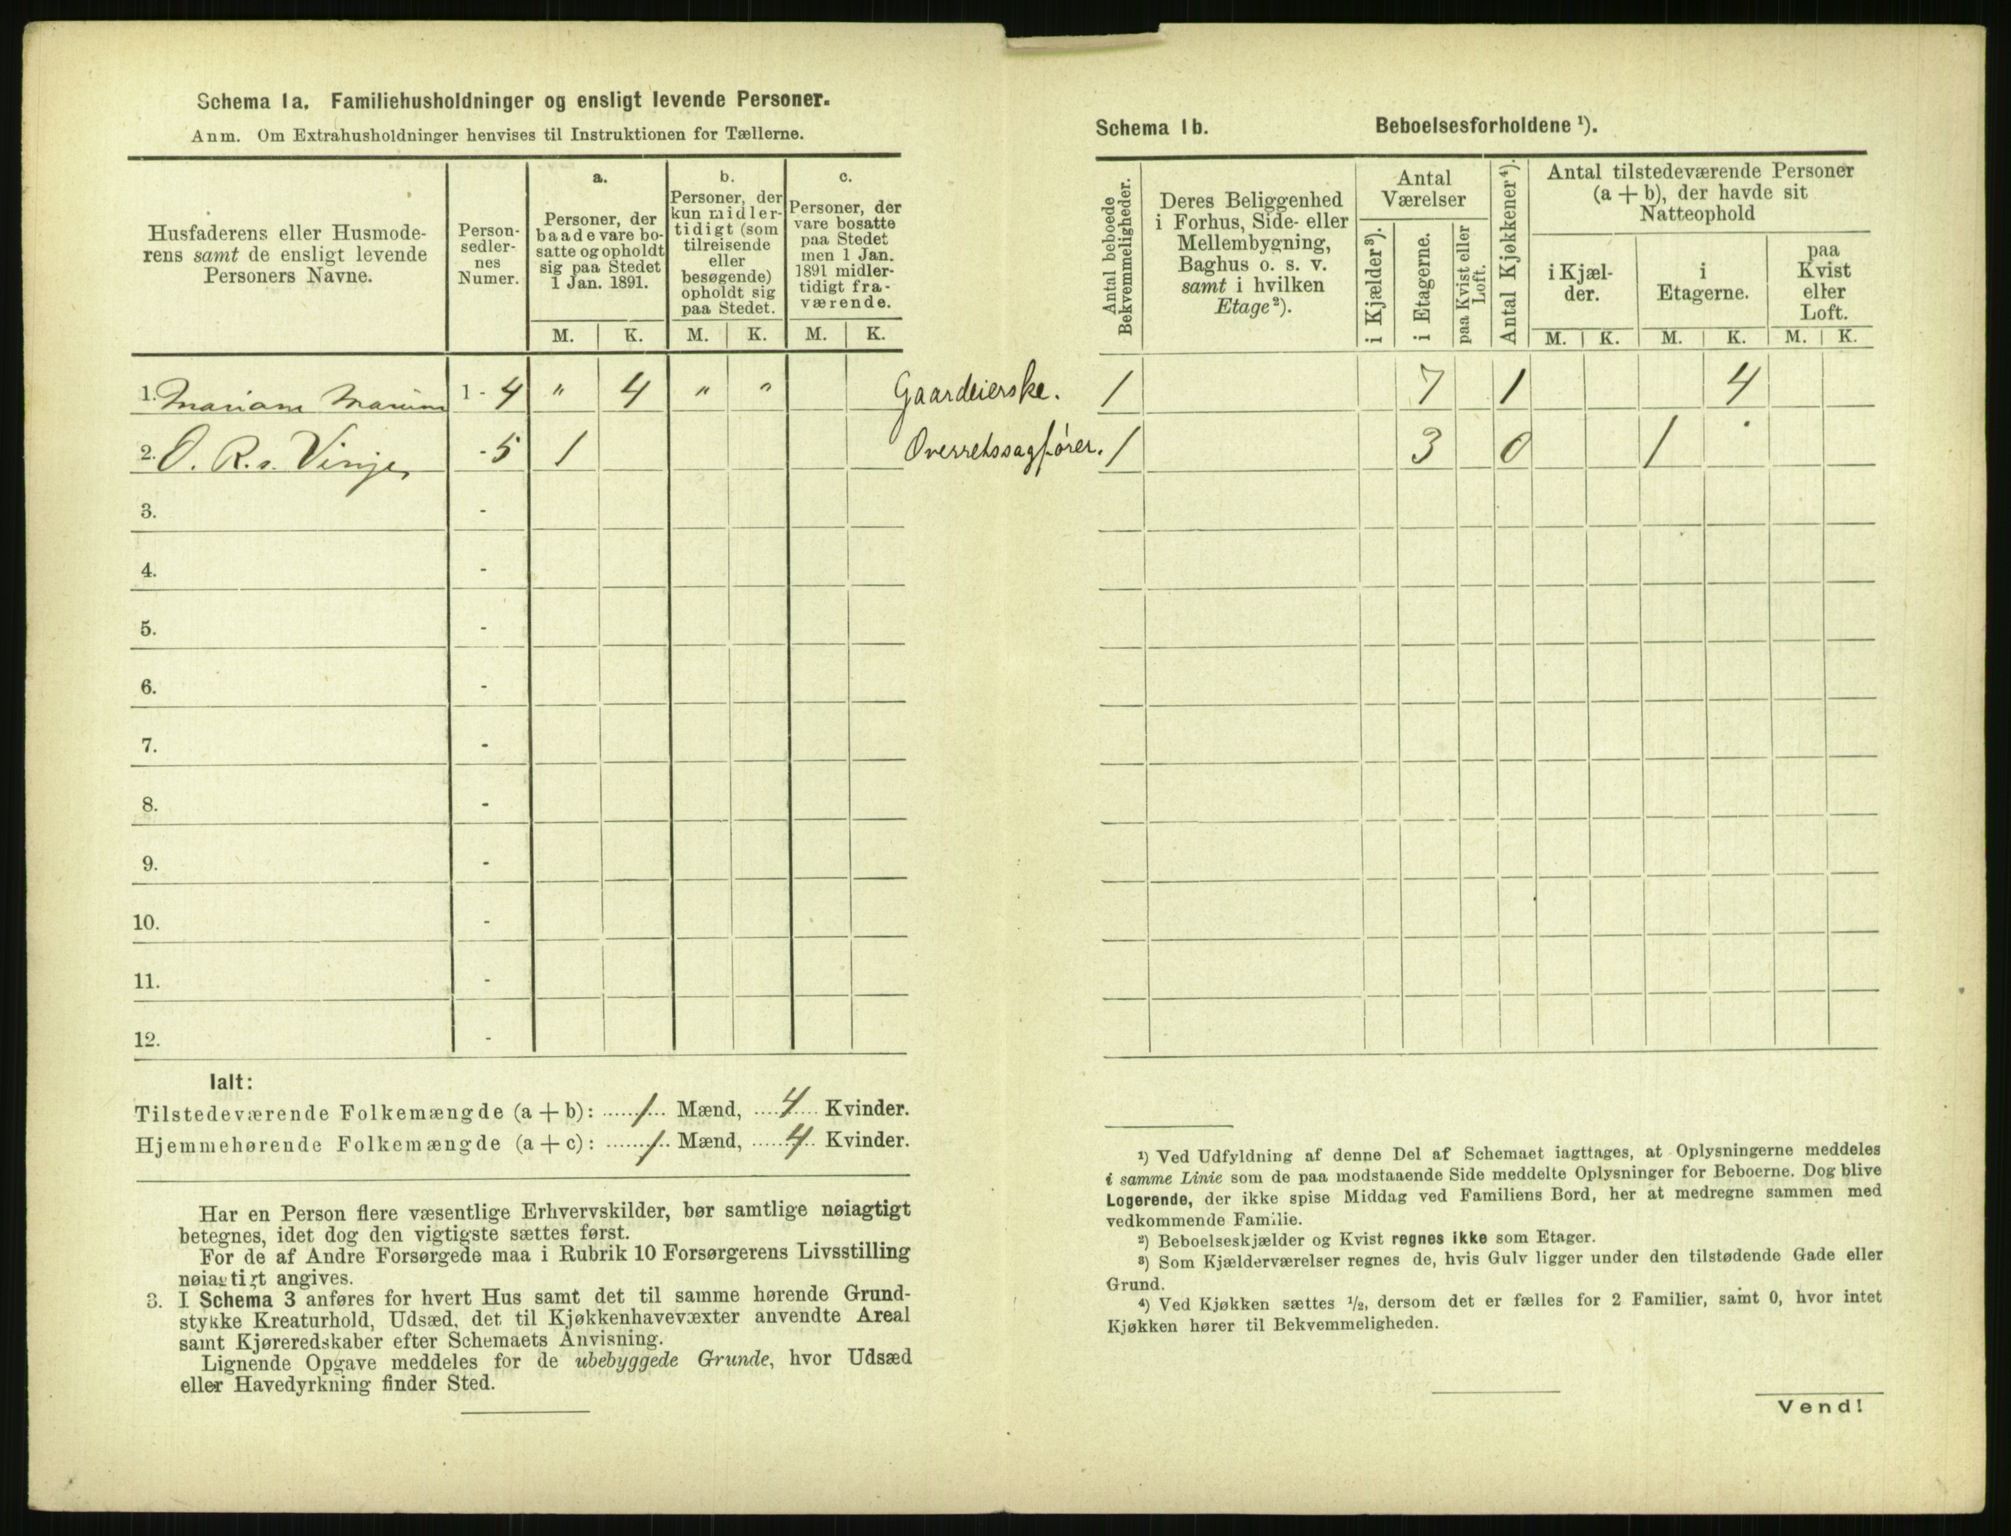 Schema 1a. Familiehusholdninger og ensligt levende Personer.
Anm. Om Extrahusholdninger henvises til Instruktionen for Tællerne.
Husfaderens eller Husmode-
rens samt de ensligt levende
Personers Navne.
Person-
sedler-
nes
Numer.
a.
Personer, der
baade vare bo-
satte og opholdt
sig paa Stedet
1 Jan. 1891.
b.
Personer, der
kun midler-
tidigt (som
tilreisende
eller
besøgende)
opholdt sig
paa Stedet.
c.
Personer, der
vare bosatte
paa Stedet
men 1 Jan.
1891 midler-
tidigt fra-
værende.
M. K. M. K. M. K.
1. Mariane 1 - 4 " 4 " " Gaardeierske.
2. O. R. s. Vinje - 5 1 Overretssagfører.
3. -
4. -
5. -
6. -
7. -
8. -
9. -
10. -
11. -
12. -
Ialt:
Tilstedeværende Folkemængde (a + b): 1 Mænd, 4 Kvinder.
Hjemmehørende Folkemængde (a + c): 1 Mænd, 4 Kvinder.
Har en Person flere væsentlige Erhvervskilder, bør samtlige nøiagtigt
betegnes, idet dog den vigtigste sættes først.
For de af Andre Forsørgede maa i Rubrik 10 Forsørgerens Livsstilling
nøiagtigt angives.
3. I Schema 3 anføres for hvert Hus samt det til samme hørende Grund-
stykke Kreaturhold, Udsæd, det til Kjøkkenhavevæxter anvendte Areal
samt Kjøreredskaber efter Schemaets Anvisning.
Lignende Opgave meddeles for de ubebyggede Grunde, hvor Udsæd
eller Havedyrkning finder Sted.
Schema 1b. Beboelsesforholdene ¹).
Antal beboede
Bekvemmeligheder.
Deres Beliggenhed
i Forhus, Side- eller
Mellembygning,
Baghus o. s. v.
samt i hvilken
Etage ²).
Antal
Værelser
i Kjælder ³).
i Etagerne.
paa Kvist eller
Loft.
Antal Kjøkkener ⁴).
Antal tilstedeværende Personer
(a + b), der havde sit
Natteophold
i Kjæl-
der.
i
Etagerne.
paa
Kvist
eller
Loft.
M. K. M. K. M. K.
1 7 1 4
1 3 0 1
¹) Ved Udfyldning af denne Del af Schemaet iagttages, at Oplysningerne meddeles
i samme Linie som de paa modstaaende Side meddelte Oplysninger for Beboerne. Dog blive
Logerende, der ikke spise Middag ved Familiens Bord, her at medregne sammen med
vedkommende Familie.
²) Beboelseskjælder og Kvist regnes ikke som Etager.
³) Som Kjælderværelser regnes de, hvis Gulv ligger under den tilstødende Gade eller
Grund.
⁴) Ved Kjøkken sættes ½, dersom det er fælles for 2 Familier, samt 0, hvor intet
Kjøkken hører til Bekvemmeligheden.
Vend!